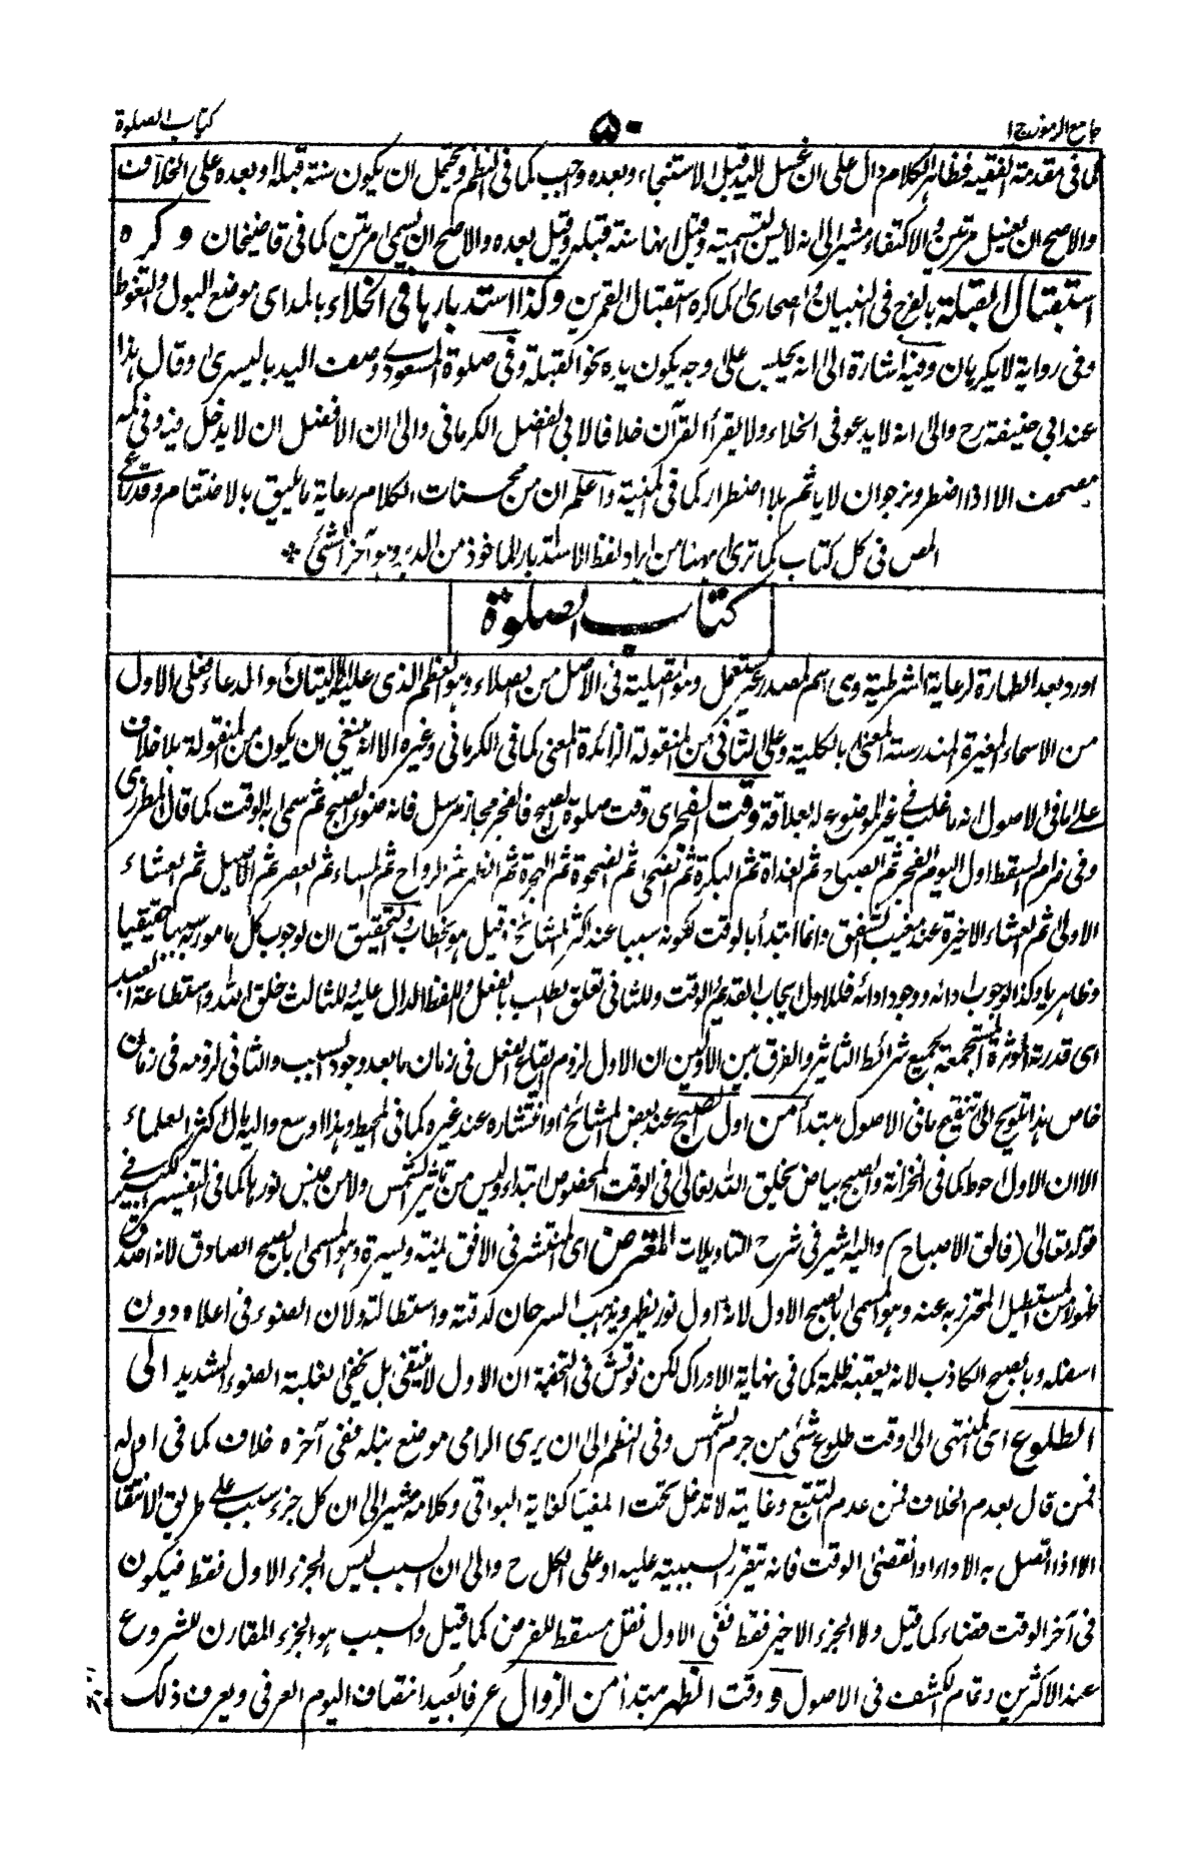 جامع الرموز ج ا
۵۰
كتاب الصلوة
كما فى مقدمة الفقيه فظاهر الكلام دال على ان غسل اليد قبل الاستنجاء وبعده واجب كما فى النظم ويحتمل ان يكون سنة قبله او بعده على الخلاف
والاصح ان يغسل مرتين والاكتفاء مشير الى انه لا يسن التسمية وقيل انها سنة قبله وقيل بعده والاصح ان يسمى مرتين كما فى قاضيخان وكره
استقبال القبلة بالفرج فى البنيان والصحارى كما كره استقبال القمرين وكذا استدبارها فى الخلاء بالمد اى موضع البول والتغوط
وفى رواية لا يكرهان وفيه اشارة الى انه يجلس على وجه يكون يده نحو القبلة وفى صلوة المسعودى وضعت اليد باليسرى وقال هذا
عند ابى حنيفة رح والى انه لا يدعو فى الخلاء ولا يقرأ القرآن خلافا لابى الفضل الكرمانى والى ان الافضل ان لا يدخل فيه وفى كمه
مصحف الا اذا اضطر ونرجو ان لا ياثم بلا اضطرار كما فى المنية واعلم ان من محسنات الكلام رعاية ما يليق بالاختتام وقد راعى
المص فى كل كتاب كما ترى ههنا من ايراد لفظ الاستدبار الماخوذ من الدبر وهو آخر الشئ
كتاب الصلوة
اورد بعد الطهارة لرعاية الشرطية وهى اسم لمصدر غير مستعمل وهو التصلية فى الاصل من الصلاء وهو العظم الذى عليه الاليتان والدعاء فعلى الاول
من الاسماء المغيرة المندرسة المعنى بالكلية وعلى الثانى من المنقولة الزائدة المعنى كما فى الكرمانى وغيره الا انه ينبغى ان يكون من المنقولة بلا خلاف
على ما فى الاصول انه ما غلب فى غير الموضوع له بعلاقة وقت الفجر اى وقت صلوة الصبح فالفجر مجاز مرسل فانه ضوء الصبح ثم سمى به الوقت كما قال المطرزى
وفى ضرام السقط اول اليوم الفجر ثم الصباح ثم الغداة ثم البكرة ثم الضحى ثم الضحوة ثم الهجرة ثم الظهر ثم الرواح ثم المساء ثم العصر ثم الاصيل ثم العشاء
الاولى ثم العشاء الاخيرة عند مغيب الشفق وانما ابتدأ بالوقت لكونه سببا عند اكثر المشائخ وقيل هو الخطاب والتحقيق ان لوجوب كل مامور به سببا حقيقيا
وظاهريا وكذا لوجوب ادائه ووجود ادائه فللاول ايجاب القديم والوقت وللثانى تعلق الطلب بالفعل واللفظ الدال عليه وللثالث خلق الله واستطاعة العبد
اى قدرته المؤثرة المستجمعة بجميع شرائط التاثير والفرق بين الاولين ان الاول لزوم ايقاع الفعل فى زمان ما بعد وجود السبب والثانى لزومه فى زمان
خاص هذا تلويح الى تنقيح ما فى الاصول مبتدأ من اول الصبح عند بعض المشائخ او انتشاره عند غيره كما فى المحيط وهذا اوسع واليه مال اكثر العلماء
الا ان الاول احوط كما فى الخزانة والصبح بياض يخلق الله تعالى فى الوقت المخصوص ابتداء وليس من تاثير الشمس ولا من جنس نورها كما فى التفسير الكبير فى
قوله تعالى (فالق الاصباح) واليه اشير فى شرح التاويلات المعترض اى المنتشر فى الافق يمنة ويسرة وهو المسمى بالصبح الصادق لانه اصدق
ظهورا من المستطيل المحترز به عنه وهو المسمى بالصبح الاول لانه اول نور يظهر وبذنب السرحان لدقته واستطالته ولان الضوء فى اعلاه دون
اسفله وبالصبح الكاذب لانه يعقبه ظلمة كما فى نهاية الادراك لكن نوقش فى التحفة ان الاول لا ينتفى بل يخفى لغلبة الضوء الشديد الى
الطلوع اى المنتهى الى وقت طلوع شئ من جرم الشمس وفى النظم الى ان يرى الرامى موضع نبله ففى آخره خلاف كما فى اوله
فمن قال بعدم الخلاف فمن عدم التتبع وغايته لا تدخل تحت المغيا كغاية البواقى وكلامه مشير الى ان كل جزء سبب على طريق الانتقال
الا اذا اتصل به الاداء او انقضى الوقت فانه يتقرر السببية عليه او على الكل ح والى ان السبب ليس الجزء الاول فقط فيكون
فى آخر الوقت قضاء كما قيل ولا الجزء الاخير فقط ففى الاول نفل مسقط للفرض كما قيل والسبب هو الجزء المقارن للشروع
عند الاكثرين وتمام الكشف فى الاصول ووقت الظهر مبتدأ من الزوال عرفا بُعَيد انتصاف اليوم العرفى ويعرف ذلك